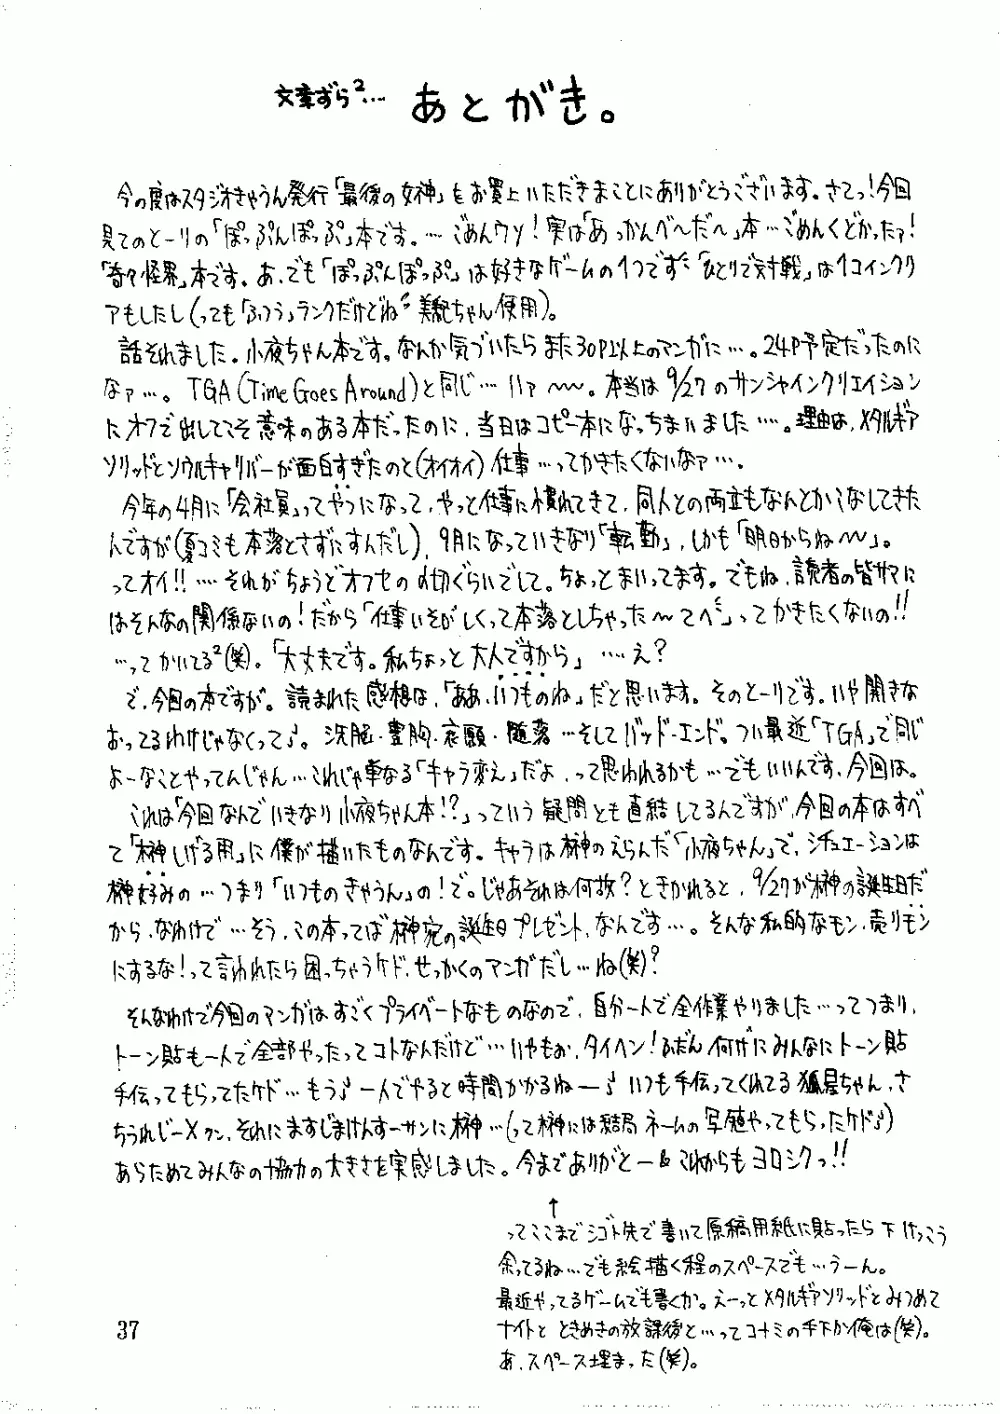 文章ずら²… あとがき。
今の度はスタジオきゃうん発行「最後の女神」をお買上いただきまことにありがとうございます。さてっ!今回
見てのとーりの「ぽっぷんぽっぷ」本です。…ごめんウソ!実は「あっかんべ〜だ〜」本…ごめんくどかったァ!
「奇々怪界」本です。あ、でも「ぽっぷんぽっぷ」は好きなゲームの1つです「ひとりで対戦」は1コインクリ
アもしたし(っても「ふつう」ランクだけどね 美貌ちゃん使用)。
話それました。小夜ちゃん本です。なんか気づいたらまた30P以上のマンガに…。24P予定だったのに
なァ…。TGA(Time Goes Around)と同じ…ハァ〜〜。本当は9/27のサンシャインクリエイション
にオフで出してこそ意味のある本だったのに、当日はコピー本になっちまいました…。理由は、メタルギア
ソリッドとソウルキャリバーが面白すぎたのと(オイオイ)仕事…ってかきたくないなァ…。
今年の4月に「会社員」ってやつになって、やっと仕事に慣れてきて、同人との両立もなんとかこなしてきた
んですが(夏コミも本落とさずにすんだし)、9月になっていきなり「転勤」、しかも「明日からね〜〜」。
ってオイ!!…それがちょうどオフセの〆切ぐらいでして。ちょっとまいってます。でもね、読者の皆サマに
はそんなの関係ないの!だから「仕事いそがしくって本落としちゃった〜てへ」ってかきたくないの!!
…ってかいてる²(笑)。「大丈夫です。私ちょっと大人ですから」…え?
で、今回の本ですが。読まれた感想は、「ああ、いつものね」だと思います。そのとーりです。いや開きな
おってるわけじゃなくって♪。洗脳・豊胸・哀願・堕落…そしてバッド・エンド。つい最近「TGA」で同じ
よーなことやってんじゃん…これじゃ単なる「キャラ変え」だよ、って思われるかも…でもいいんです、今回は。
これは「今回なんでいきなり小夜ちゃん本!?」っていう疑問とも直結してるんですが、今回の本はすべ
て「榊しげる用」に僕が描いたものなんです。キャラは榊のえらんだ「小夜ちゃん」で、シチュエーションは
榊好みの…つまり「いつものきゃうん」の!で。じゃあそれは何故?ときかれると、9/27が榊の誕生日だ
から、なわけで…そう、この本ってば榊宛の誕生日プレゼント、なんです…。そんな私的なモン、売りモン
にするな!って言われたら困っちゃうケド、せっかくのマンガだし…ね(笑)?
そんなわけで今回のマンガはすごくプライベートなものなので、自分一人で全作業やりました…ってつまり、
トーン貼も一人で全部やったってコトなんだけど…いやもお、タイヘン!ふだん何げにみんなにトーン貼
手伝ってもらってたケド…もう♪一人でやると時間かかるねー♪いつも手伝ってくれてる狐星ちゃん、さ
ちうれじーXクン、それにますじまけんすーサンに榊…(って榊には結局ネームの写植やってもらったケド♪)
あらためてみんなの協力の大きさを実感しました。今までありがとー&これからもヨロシクっ!!
↑
ってここまでシゴト先で書いて原稿用紙に貼ったら下けっこう
余ってるね…でも絵描く程のスペースでも…うーん。
最近やってるゲームでも書くか。えーっとメタルギアソリッドとみつめて
ナイトとときめきの放課後と…ってコナミの手下か俺は(笑)。
あ、スペース埋まった(笑)。
37